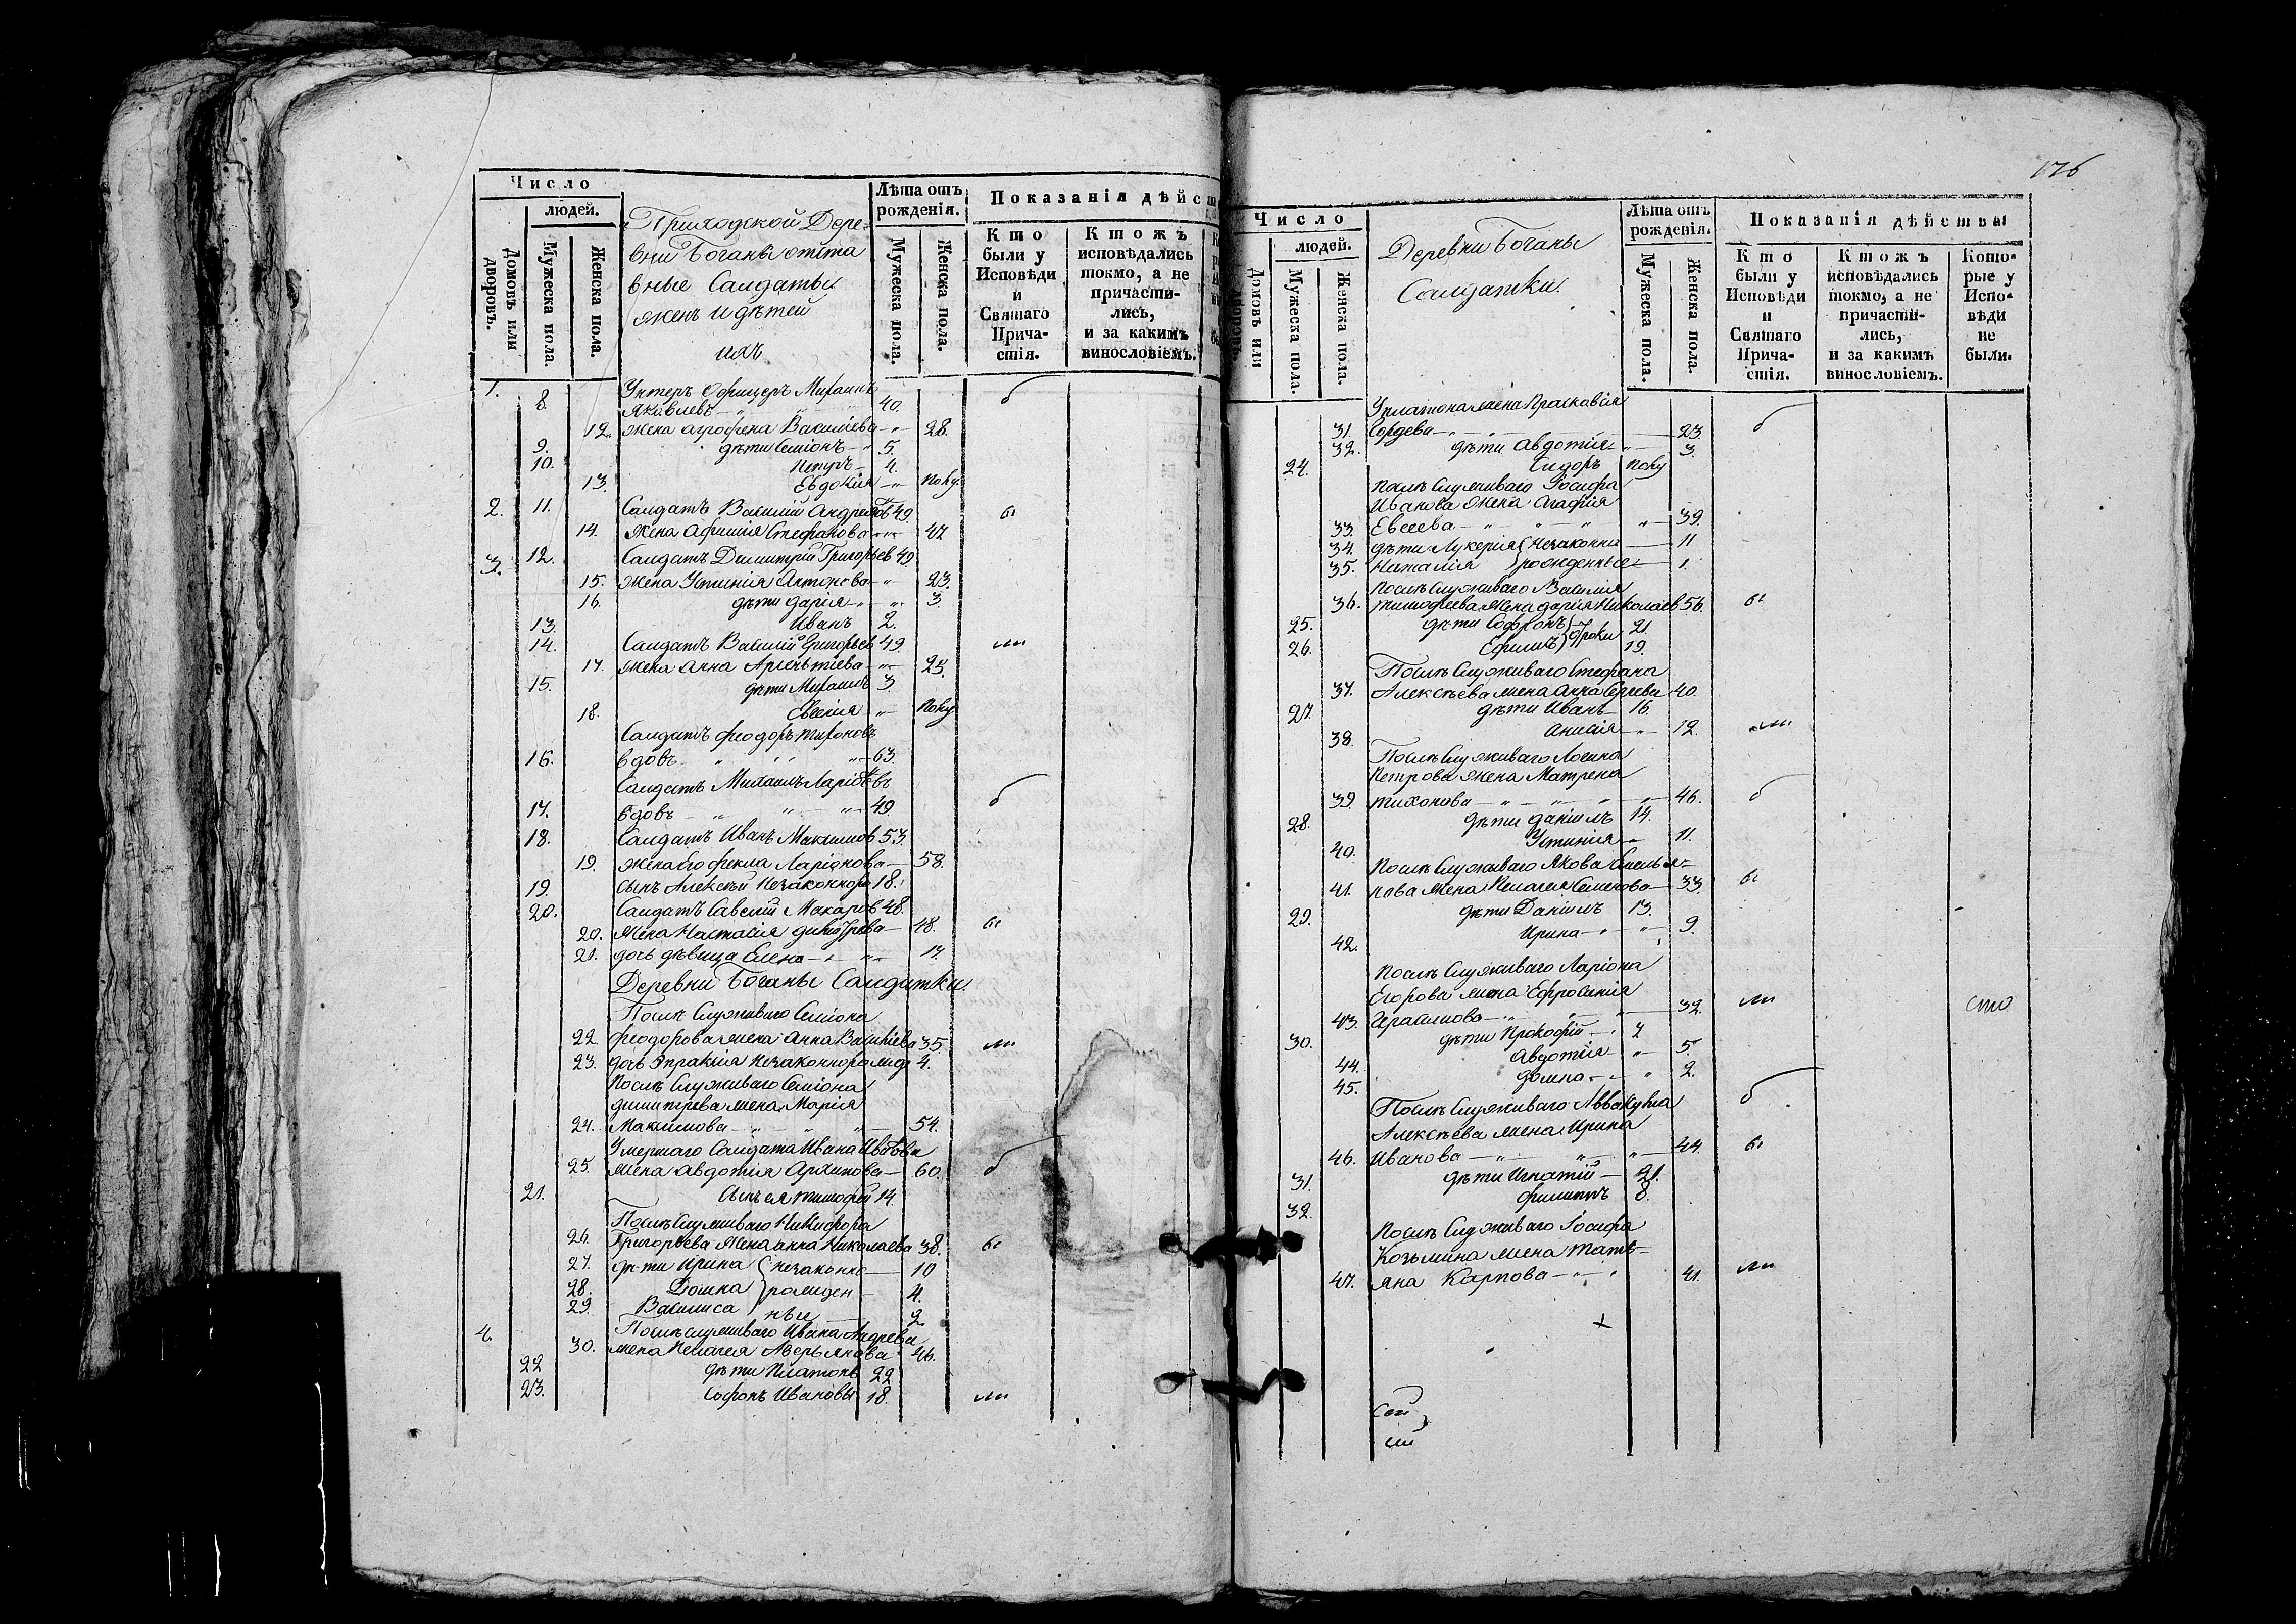 Число
людей.
Домовъ или дворовъ.
Мужеска пола.
Женска пола.
Приходской Дере-
вни Боганы отста
вные Салдаты
женъ и дѣтей
ихъ
Лѣта отъ рожденія.
Мужеска пола.
Женска пола.
Показанія дѣйст
Кто были у Исповѣди и Святаго Прича- стія.
Ктожъ исповѣдались токмо, а не причасти- лись, и за какимъ винословіемъ.
1. 8. Унтеръ Офицеръ Михаилъ
Яковлевъ 40.
12. жена агрофена Василіева 28.
9. дѣти Семіонъ 5.
10. Петръ 4.
13. Евдокия полу
2. 11. Салдатъ Василій Андреевъ 49.
14. Жена Афимія Стефанова 47
3. 12. Салдатъ Димитрій Григорьев 49
15. жена Устинія Антонова 23.
16. дѣти дарія 3.
13. Иванъ 2.
14. Салдатъ Василій Григорьев 49.
17. жена Анна Арсентіева 25.
15. дѣти Михаилъ 3.
18. Евгения полу
Салдатъ феодоръ тихоновъ
16. вдовъ 63.
Салдатъ Михаилъ Ларіоновъ
17. вдовъ 49.
18. Салдатъ Иванъ Максимов 53.
19. жена его фекла Ларіонова 58.
19. сынъ Алексѣй незаконноро 18.
20. Салдатъ Савелій Макаров 48.
20. Жена Настасія димитрева 48.
21. дочь дѣвица Елена 17.
Деревни Боганы Салдатки.
Послѣ Служиваго Семіона
22. феодорова жена Анна Василіева 35.
23. дочь Эпракія незаконнорожд 4.
Послѣ Служиваго Семіона
димитрева жена Марія
24. Максимова 54.
Умершаго Салдата Ивана Иванова
25. жена авдотія Архипова 60.
21. сынъ ея тимофей 14.
Послѣ Служиваго Никифора
26. Григорьева Жена анна Николаева 38.
27. дѣти Ирина незаконно 10
28. Домна рожден 4.
29. Василиса ныя 2
4. Послѣ служиваго Ивана Андрева
30. жена Пелагея Аверьянова 46.
22 дѣти Платонъ 22
23. Софонъ Ивановы 18.
176
Число
людей.
Домовъ или дворовъ.
Мужеска пола.
Женска пола.
Деревни Боганы
Салдатки.
Лѣта отъ рожденія.
Мужеска пола.
Женска пола.
Показанія дѣйствы
Кто были у Исповѣди и Святаго Прича- стія.
Ктожъ исповѣдались токмо, а не причасти- лись, и за какимъ винословіемъ.
Кото- рые у Испо- вѣди не были.
У платона жена Прасковія
31. Гордева 23.
32. дѣти Авдотия 3.
24. Сидоръ полу
послѣ Служиваго Іосифа
Иванова Жена Агафия
33. Евсеева 39.
34. дѣти Лукерия незаконно 11
35. Наталія рожденные 1.
послѣ Служиваго Василія
36. тимофеева Жена дарія Николаев 56.
25. дѣти Софронъ 21.
26. Ефимъ 19.
Послѣ Служиваго Стефана
37. Алексѣева жена Анна Сергева 40.
27. дѣти Иванъ 16.
38. Анисія 12.
Послѣ Служиваго Логина
Петрова Жена Матрена
39. тихонова 46.
28. дѣти даніилъ 14.
40. Устинія 11.
Послѣ Служиваго Якова Емелья-
41. нова жена Пелагея Семенова 33.
29. дѣти Даніилъ 13.
42. Ирина 9.
Послѣ Служиваго Ларіона
Егорова жена Ефросинія
43. Герасимова 32.
30. дѣти Прокофій 7
44. Авдотія 5.
45. домна 2.
Послѣ Служиваго Аввакума
Алексѣева жена Ирина
46. Иванова 44.
31. дѣти Игнатій 21.
32. филиппъ 8.
послѣ Служиваго Іосифа
Козьмина жена татъ-
47. яна Карпова 41.